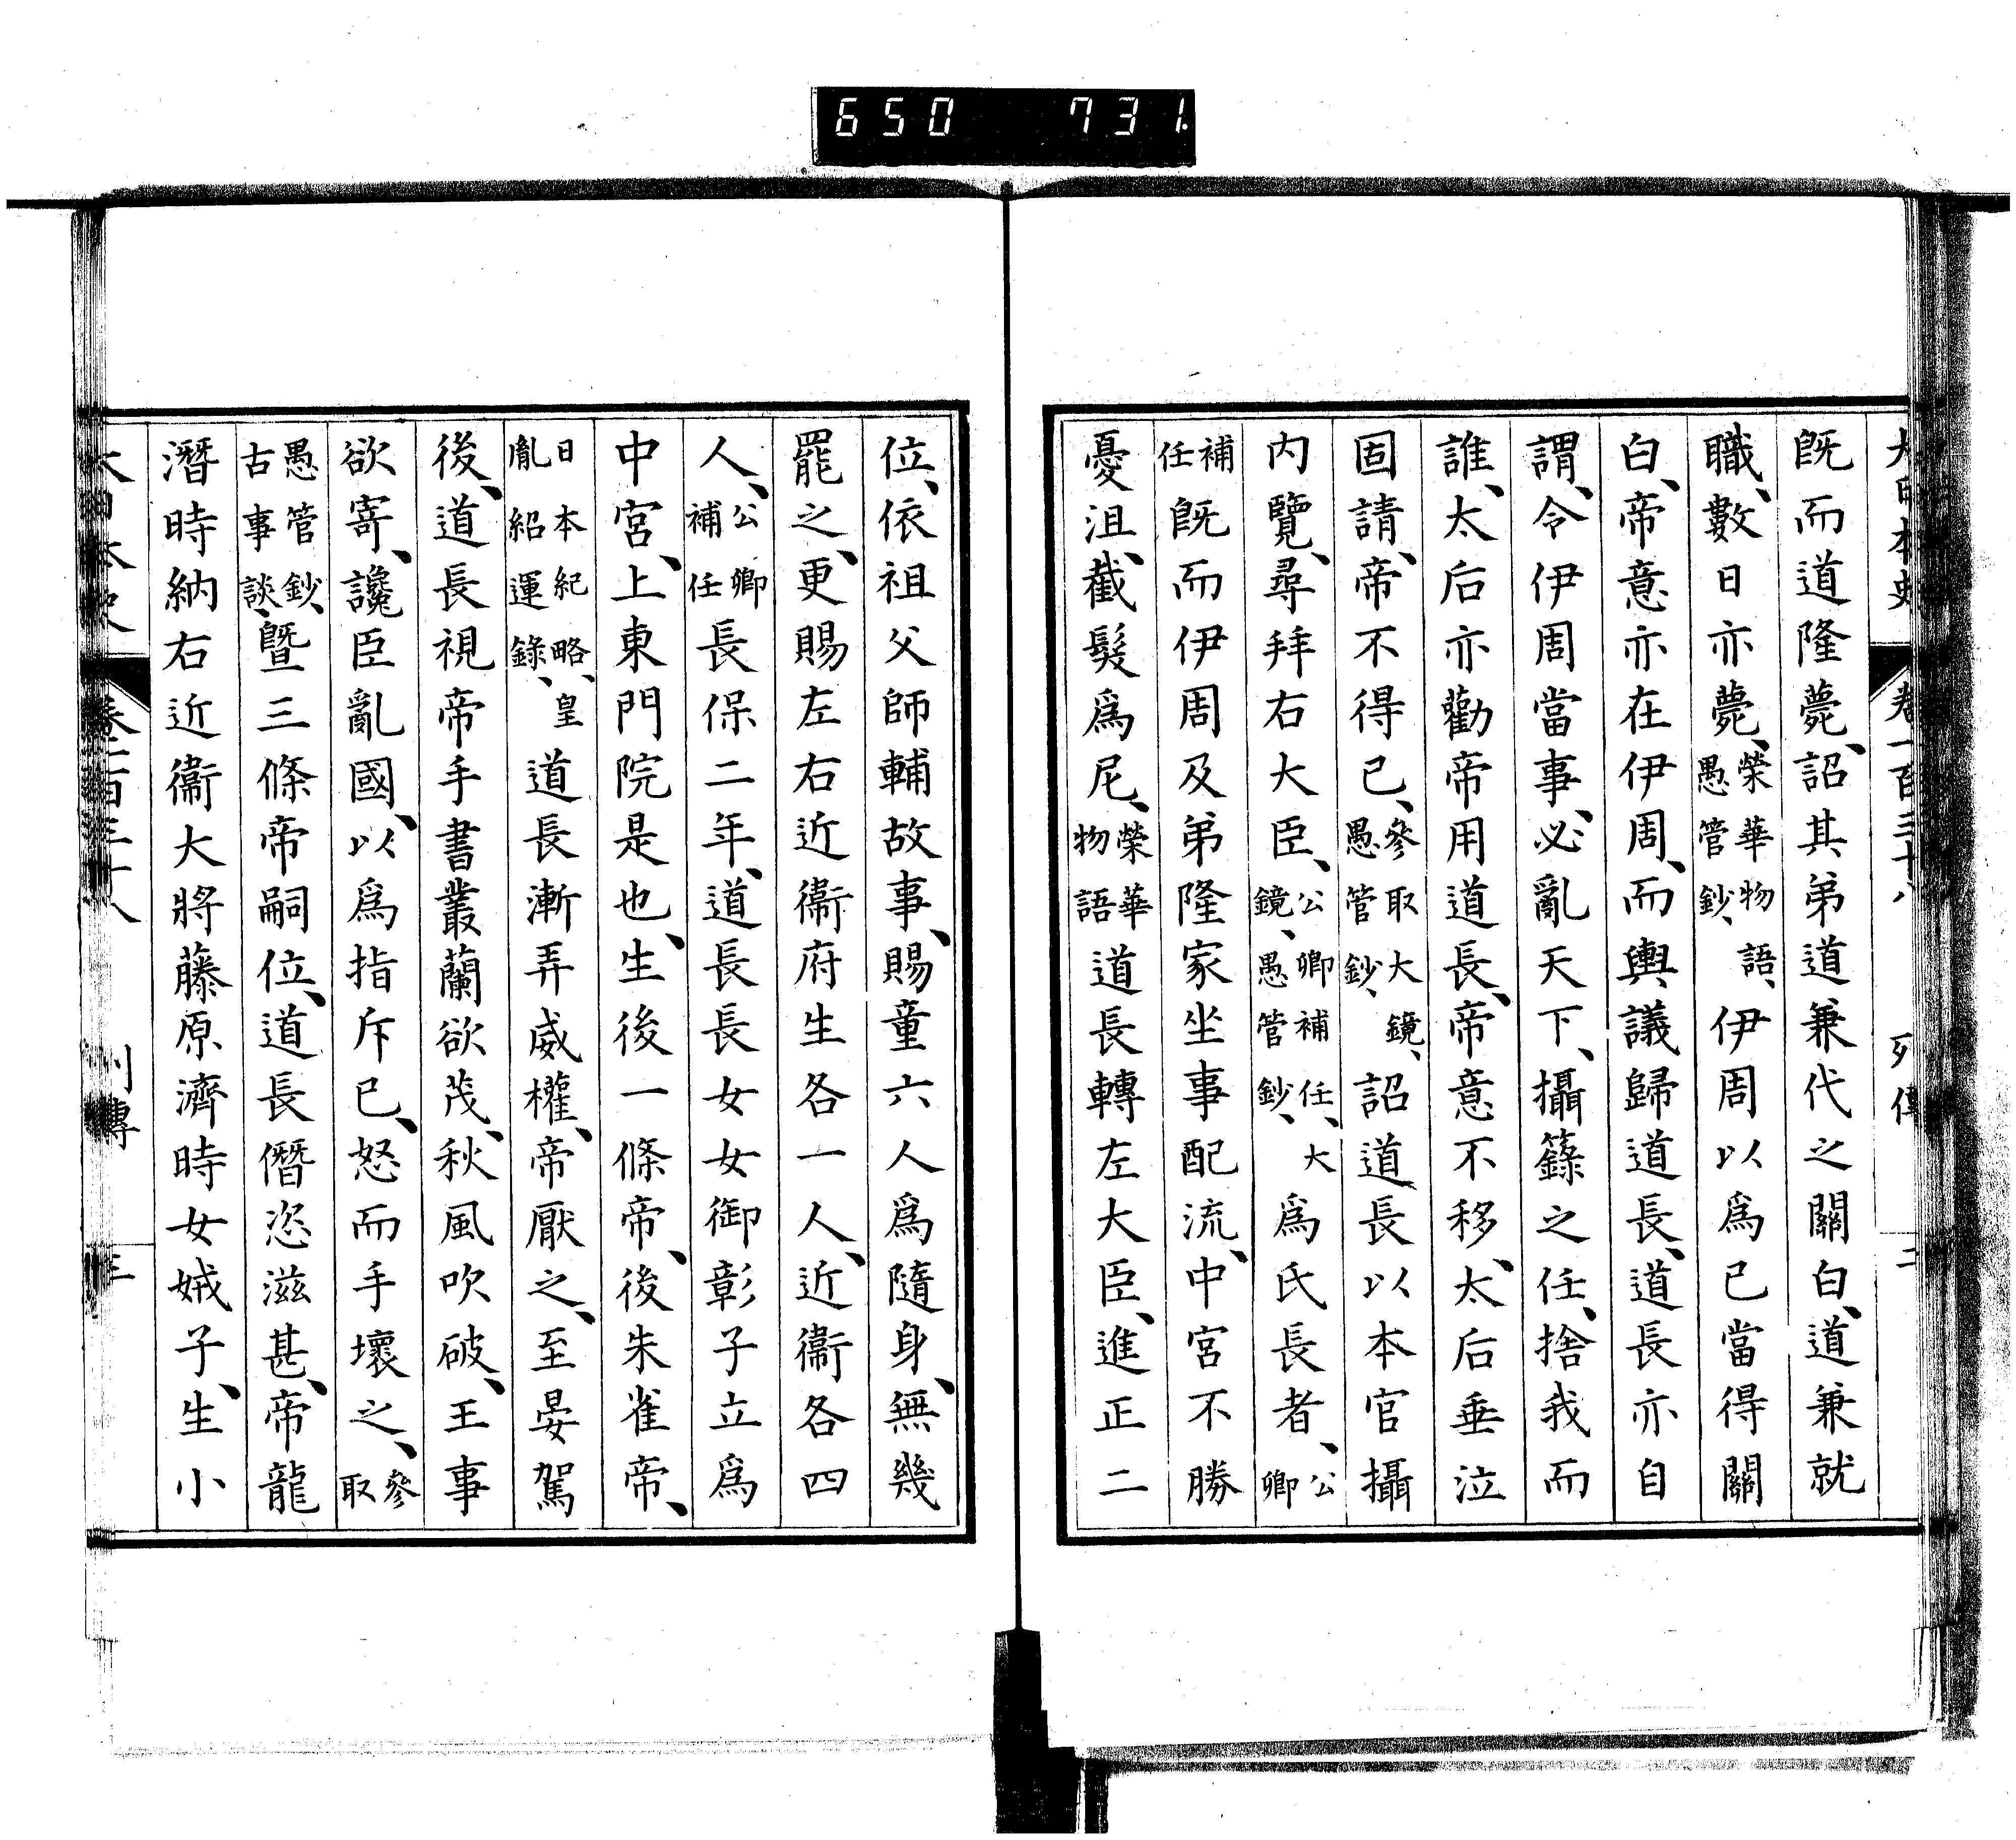 650 731.
大日本史 卷一百三十八 列傳 二
既而道隆薨、詔其弟道兼代之關白、道兼就
職、數日亦薨、榮華物語、愚管鈔、伊周以爲已當得關
白、帝意亦在伊周、而輿議歸道長、道長亦自
謂、令伊周當事、必亂天下、攝籙之任、捨我而
誰、太后亦勸帝用道長、帝意不移、太后垂泣
固請、帝不得已、參取大鏡、愚管鈔、詔道長以本官攝
内覽、尋拜右大臣、公卿補任、大鏡、愚管鈔、爲氏長者、公卿
補任既而伊周及弟隆家坐事配流、中宮不勝
憂沮、截髮爲尼、榮華物語道長轉左大臣、進正二
位、依祖父師輔故事、賜童六人爲隨身、無幾
罷之、更賜左右近衞府生各一人、近衞各四
人、公卿補任長保二年、道長長女女御彰子立爲
中宮、上東門院是也、生後一條帝、後朱雀帝、
日本紀略、皇胤紹運錄、道長漸弄威權、帝厭之、至晏駕
後、道長視帝手書叢蘭欲茂、秋風吹破、王事
欲寄、讒臣亂國、以爲指斥已、怒而手壞之、參取
愚管鈔、古事談、曁三條帝嗣位、道長僭恣滋甚、帝龍
潛時納右近衞大將藤原濟時女娍子、生小
大日本史 卷一百三十八 列傳 三